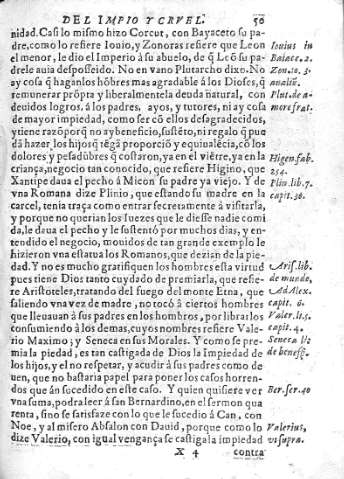 DEL IMPIO Y CRVEL. 50
nidad. Casi lo mismo hizo Corcut, con Bayaceto su pa
dre, como lo refiere Iouio, y Zonoras refiere que Leon
el menor, le dio el Imperio à su abuelo, de q̃ Leõ su pa
dre le auia desposseido. No en vano Plutarcho dize. No
ay cosa q̃ hagan los hõbres mas agradable à los Dioses, q̃
remunerar propta y liberalmente la deuda natural, con
deuidos logros. à los padres, ayos, y tutores, ni ay cosa
de mayor impiedad, como ser cõ ellos desagradecidos,
y tiene razõ porq̃ no ay beneficio, sustẽto, ni regalo q̃ pue
dã hazer los hijos q̃ tẽga proporciõ y equiualẽcia, cõ los
dolores y pesadũbres q̃ costaron, ya en el viẽtre, ya en la
criança, negocio tan conocido, que refiere Higino, que
Xantipe daua el pecho à Micon su padre ya viejo. Y de
vna Romana dize Plinio, que estando su madre en la
carcel, tenia traça como entrar secretamente à visitarla,
y porque no querian los Iuezes que le diesse nadie comi
da, le daua el pecho y le sustentò por muchos dias, y en-
tendido el negocio, mouidos de tan grande exemplo le
hizieron vna estatua los Romanos, que dezian de la pie-
dad. Y no es mucho gratifiquen los hombres esta virtud
pues tiene Dios tanto cuydado de premiarla, que refie-
re Aristoteles, tratando del fuego del monte Etna, que
saliendo vna vez de madre, no tocò à ciertos hombres
que lleuauan à sus padres en los hombros, por librarlos
consumiendo à los demas, cuyos nombres refiere Vale-
rio Maximo; y Seneca en sus Morales. Y como se pre-
mia la piedad, es tan castigada de Dios la Impiedad de
los hijos, y el no respetar, y acudir à sus padres como de
uen, que no bastaria papel para poner los casos horren-
dos que àn sucedido en este caso. Y quien quisiere ver
vna suma, podra leer à san Bernardino, en el sermon qua
renta, sino se satisfaze con lo que le sucedio à Can, con
Noe, y al misero Absalon con Dauid, porque como lo
dize Valerio, con igual vengança se castiga la impiedad
X 4 contra
Iouius in
Baiace. 2.
Zon. to. 3.
analiũ.
Plut. de a-
more frat.
Higen. fab.
254.
Plin. lib. 7.
capit. 30.
Arist. lib.
de mundo,
Ad Alex.
capit. 6.
Valer. li. 5.
capit. 4.
Seneca li.
de benefic.
Ber. ser. 40
Valerius,
vi supra.